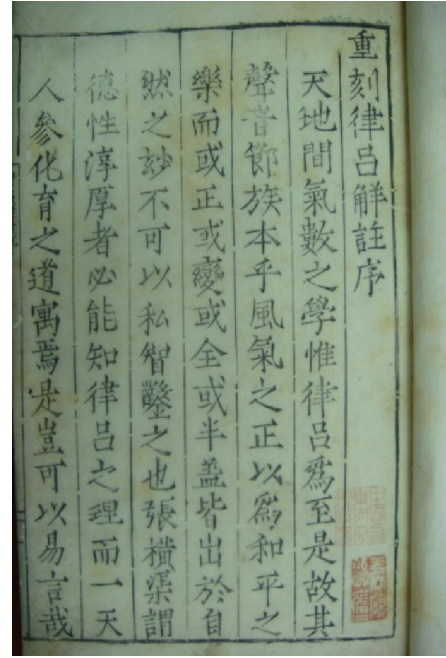 重刻律吕解註序
天地間氣數之學惟律吕爲至是故其
聲音節族本乎風氣之正以爲和平之
樂而或正或變或全或半盖皆出於自
然之玅不可以私智鑿之也張橫渠謂
徳性淳厚者必能知律吕之理而一天
人參化育之道寓焉是豈可以易言哉